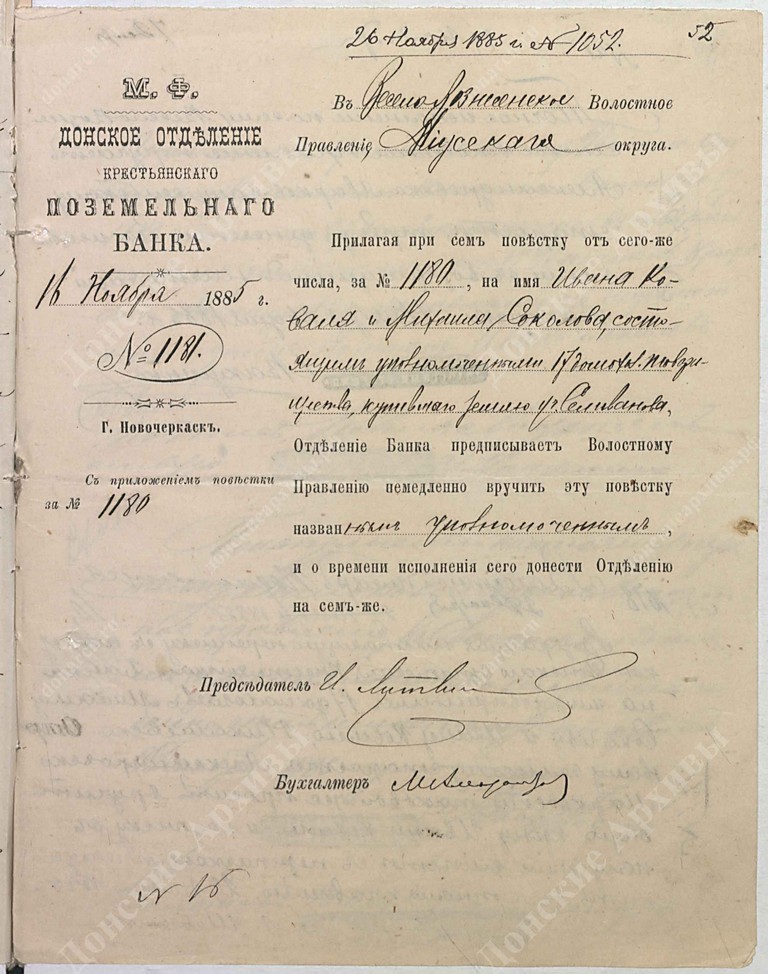 26 Ноября 1885 г. № 1052.
52
М. Ф.
ДОНСКОЕ ОТДѢЛЕНІЕ
КРЕСТЬЯНСКАГО
ПОЗЕМЕЛЬНАГО
БАНКА.
16 Ноября 1885 г.
№ 1181.
Г. Новочеркаскъ.
Съ приложеніемъ повѣстки
за № 1180
Въ Весело Вознесенское Волостное
Правленіе Міусскаго округа.
Прилагая при семъ повѣстку отъ сего-же
числа, за № 1180, на имя Ивана Ко-
валя и Михаила Соколова, состо-
ящимъ уполномоченными 17 домохоз. товари-
щества, купившаго землю у Селиванова,
Отдѣленіе Банка предписываетъ Волостному
Правленію немедленно вручить эту повѣстку
названнымъ уполномоченнымъ,
и о времени исполненія сего донести Отдѣленію
на семъ-же.
Предсѣдатель И.
Бухгалтеръ
№ 16
Донские Архивы